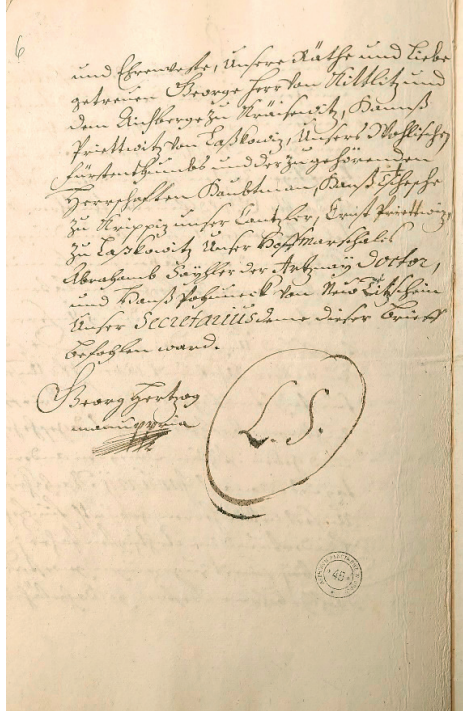 6
und Ehrenveste, Unsere Räthe und Liebe
getreuen George Herr von Kittlitz und
dem Eichberge zu Kräisewitz, Hannß
Priettwitz von Laßkowiz, Unsers Wohlischen
Fürstenthumbs und der zugehörenden
Herrschafften Haubtman, Hanß Tschesche
zu Krippiz unser Cantzler, Ernst Priettwiz
zu Laßkowitz Unser Hoffmarschalcs
Abrahamb der Artzney Doctor,
und Hanß von Neu Titschein
Unser Secretarius deme dieser brieff
befohlen ward.
Georg Hertzog
manu ppria
L. S.
46